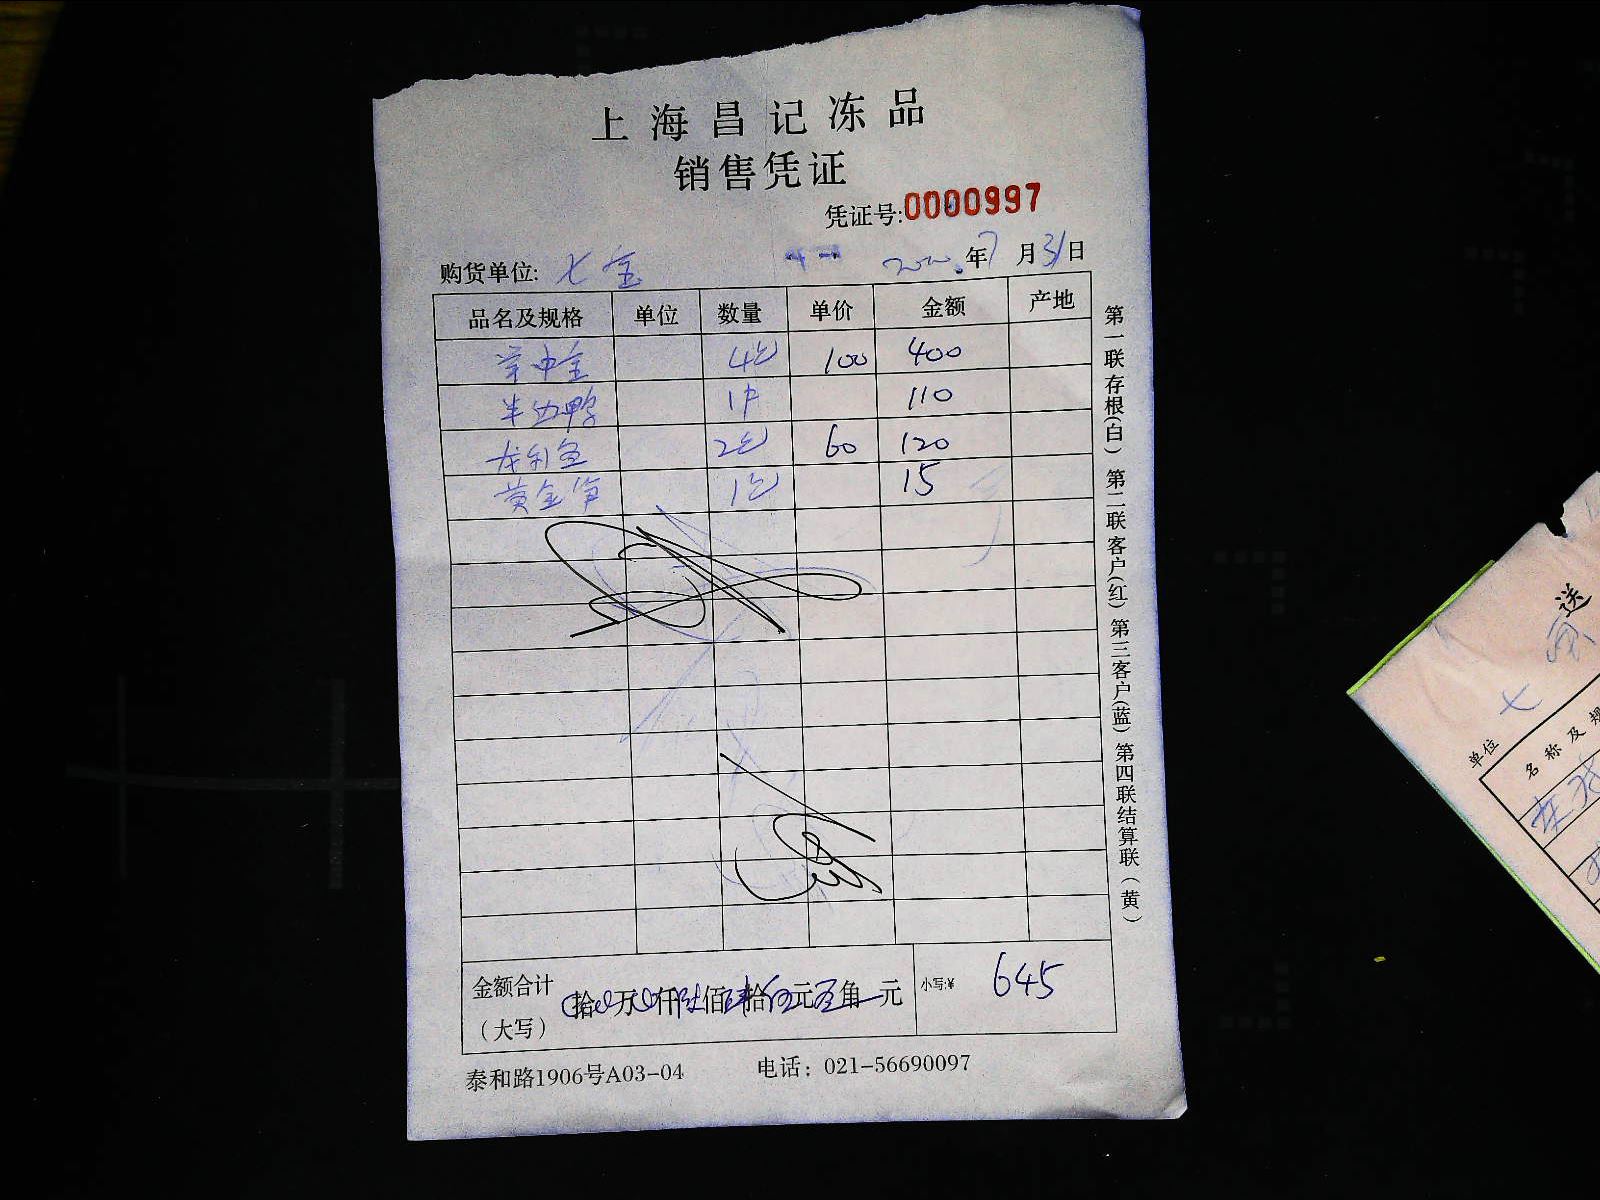 上海昌记冻品
销售凭证
凭证号:0000997
购货单位: 七宝 年7月31日
品名及规格 单位 数量 单价 金额 产地
4包 100 400
半边鸭 1件 110
龙利鱼 2包 60 120
黄金笋 1包 15
金额合计 拾 万 仟陆佰肆拾伍元 角 元 小写:¥ 645
(大写)
泰和路1906号A03-04 电话: 021-56690097
第一联存根(白) 第二联客户(红) 第三客户(蓝) 第四联结算联(黄)
送
单位 七
名称及规